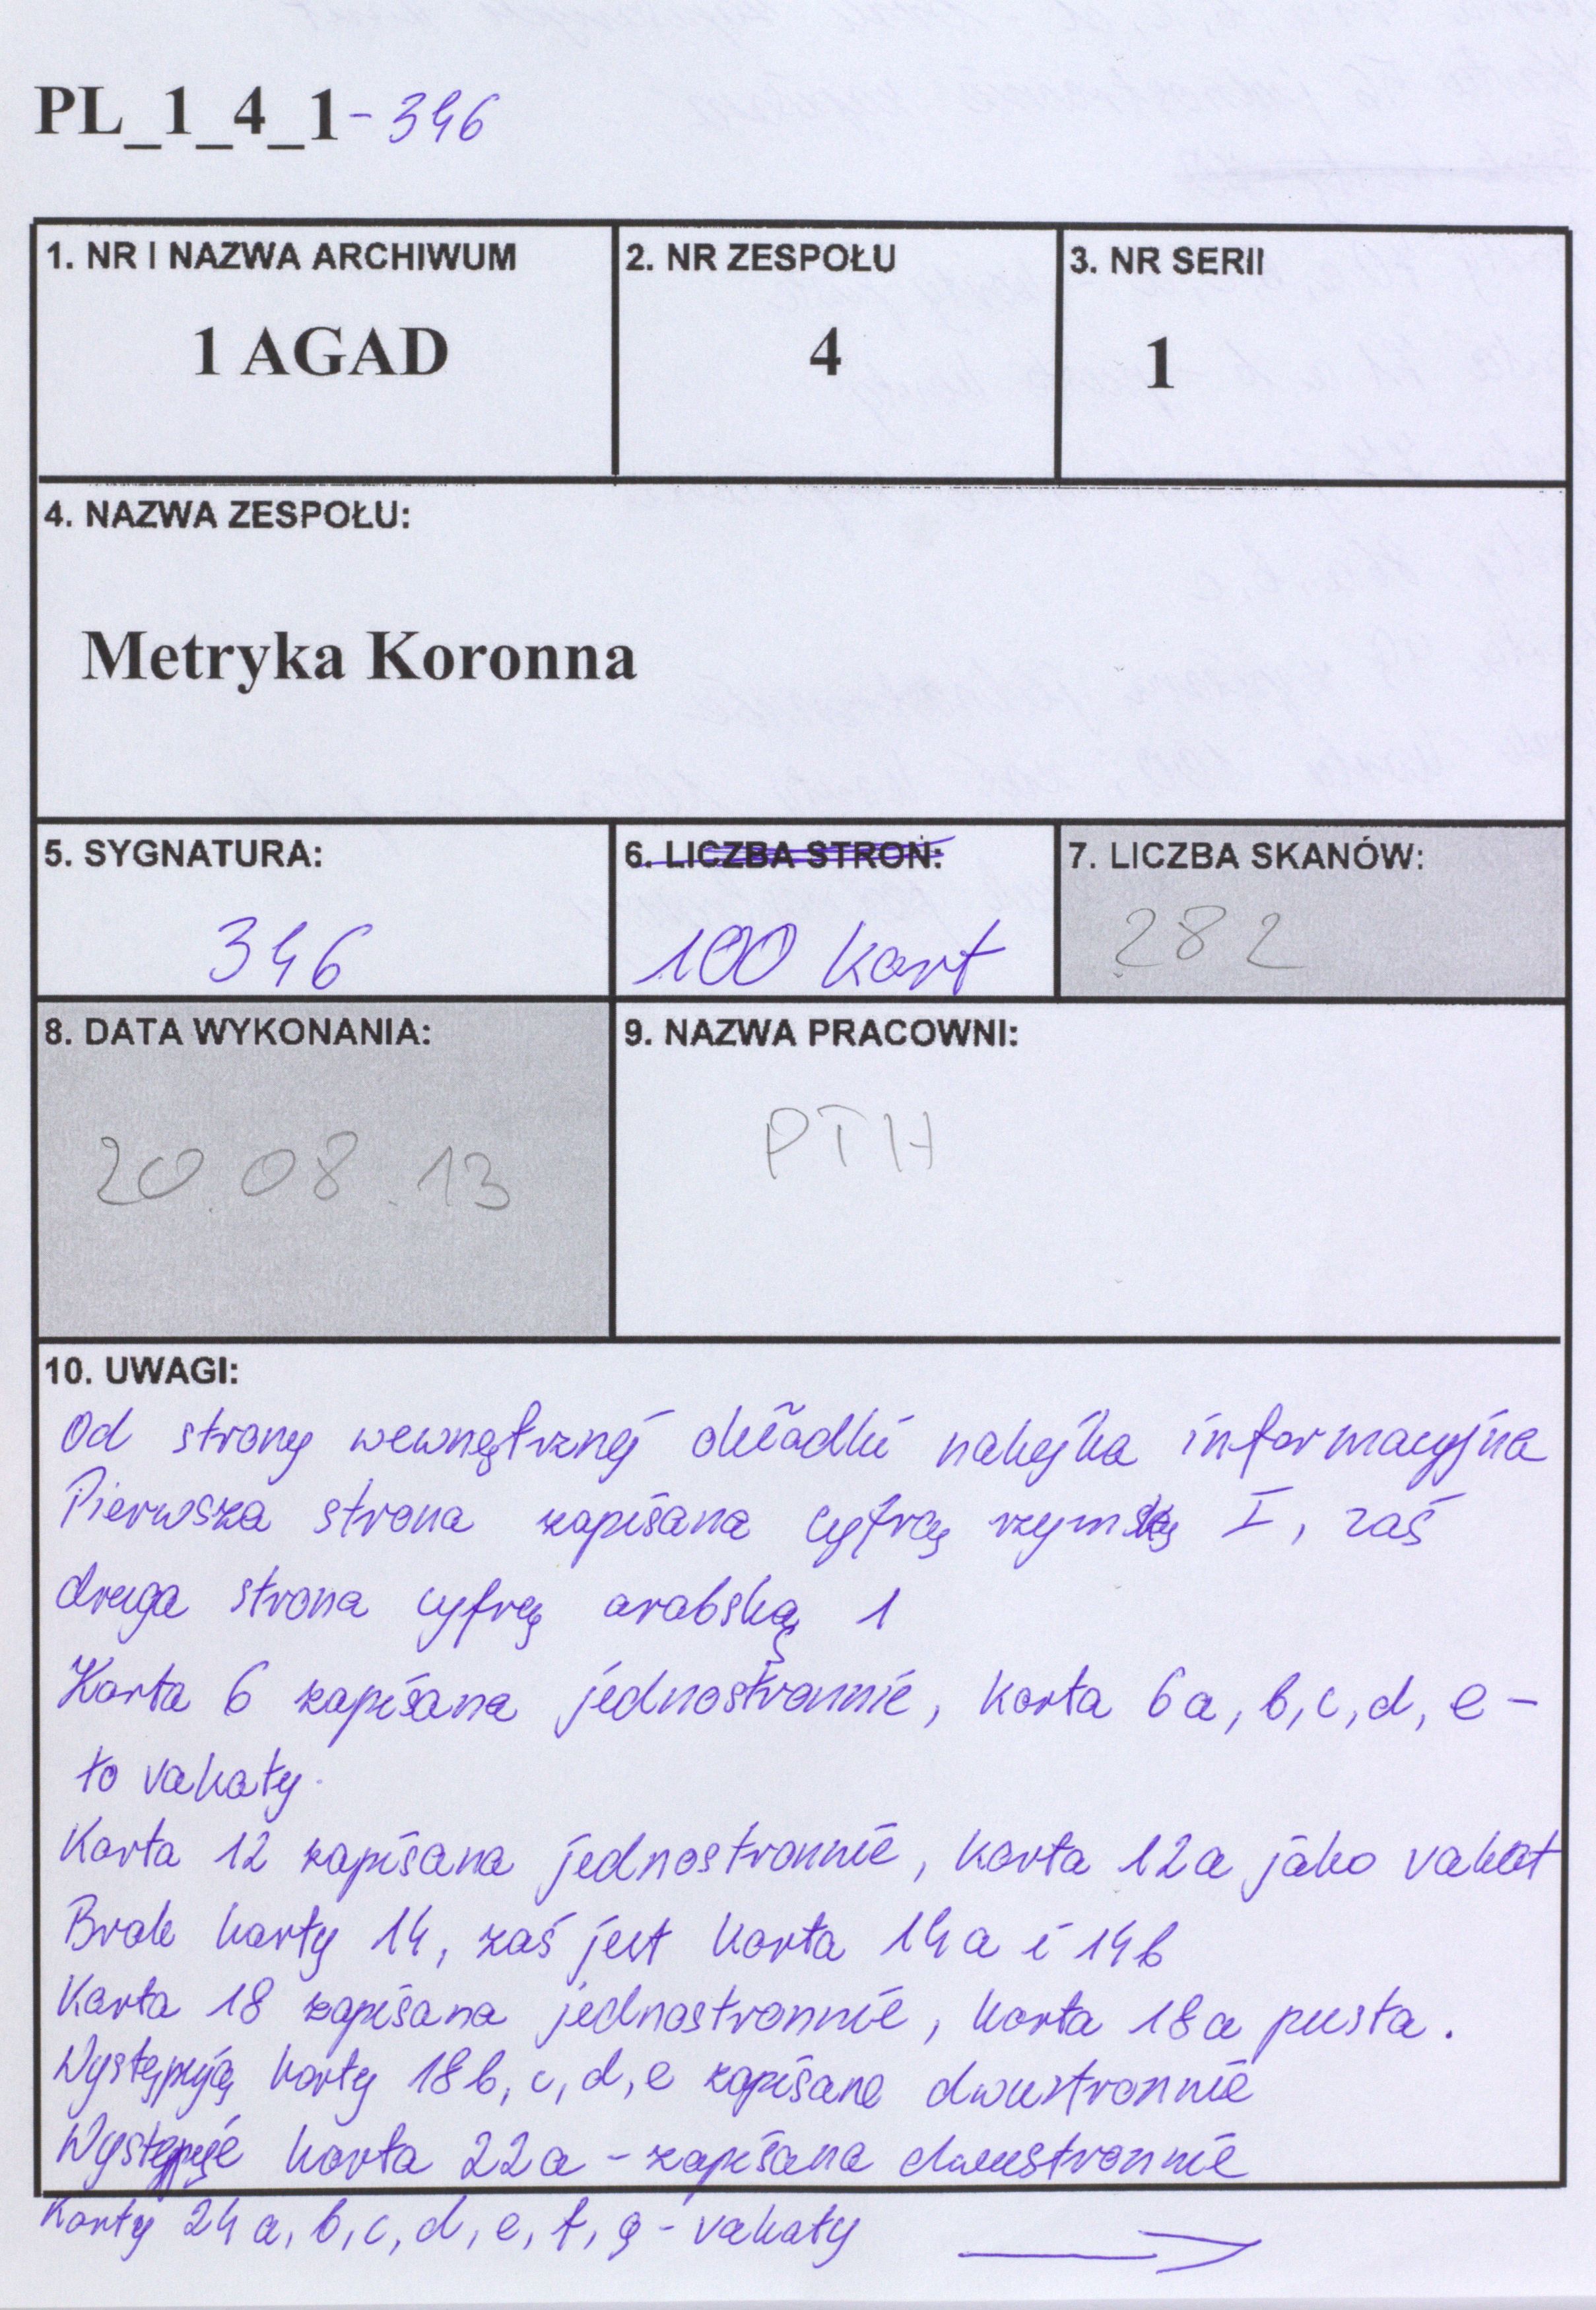 PL_1_4_1-346
1. NR I NAZWA ARCHIWUM
1 AGAD
2. NR ZESPOŁU
4
3. NR SERII
1
4. NAZWA ZESPOŁU:
Metryka Koronna
5. SYGNATURA:
346
6. LICZBA STRON:
100 kart
7. LICZBA SKANÓW:
282
8. DATA WYKONANIA:
20.08.13
9. NAZWA PRACOWNI:
PTH
10. UWAGI:
Od strony wewnętrznej okładki naklejka informacyjna
Pierwsza strona zapisana cyfrą rzymską I, zaś
druga strona cyfrą arabską 1
Karta 6 zapisana jednostronnie, karta 6a, b, c, d, e -
to vakaty.
Karta 12 zapisana jednostronnie, karta 12a jako vakat
Brak karty 14, zaś jest karta 14a i 14b
Karta 18 zapisana jednostronnie, karta 18a pusta.
Występują karty 18b, c, d, e zapisane dwustronnie
Występuje karta 22a - zapisana dwustronnie
Karty 24a, b, c, d, e, f, g - vakaty